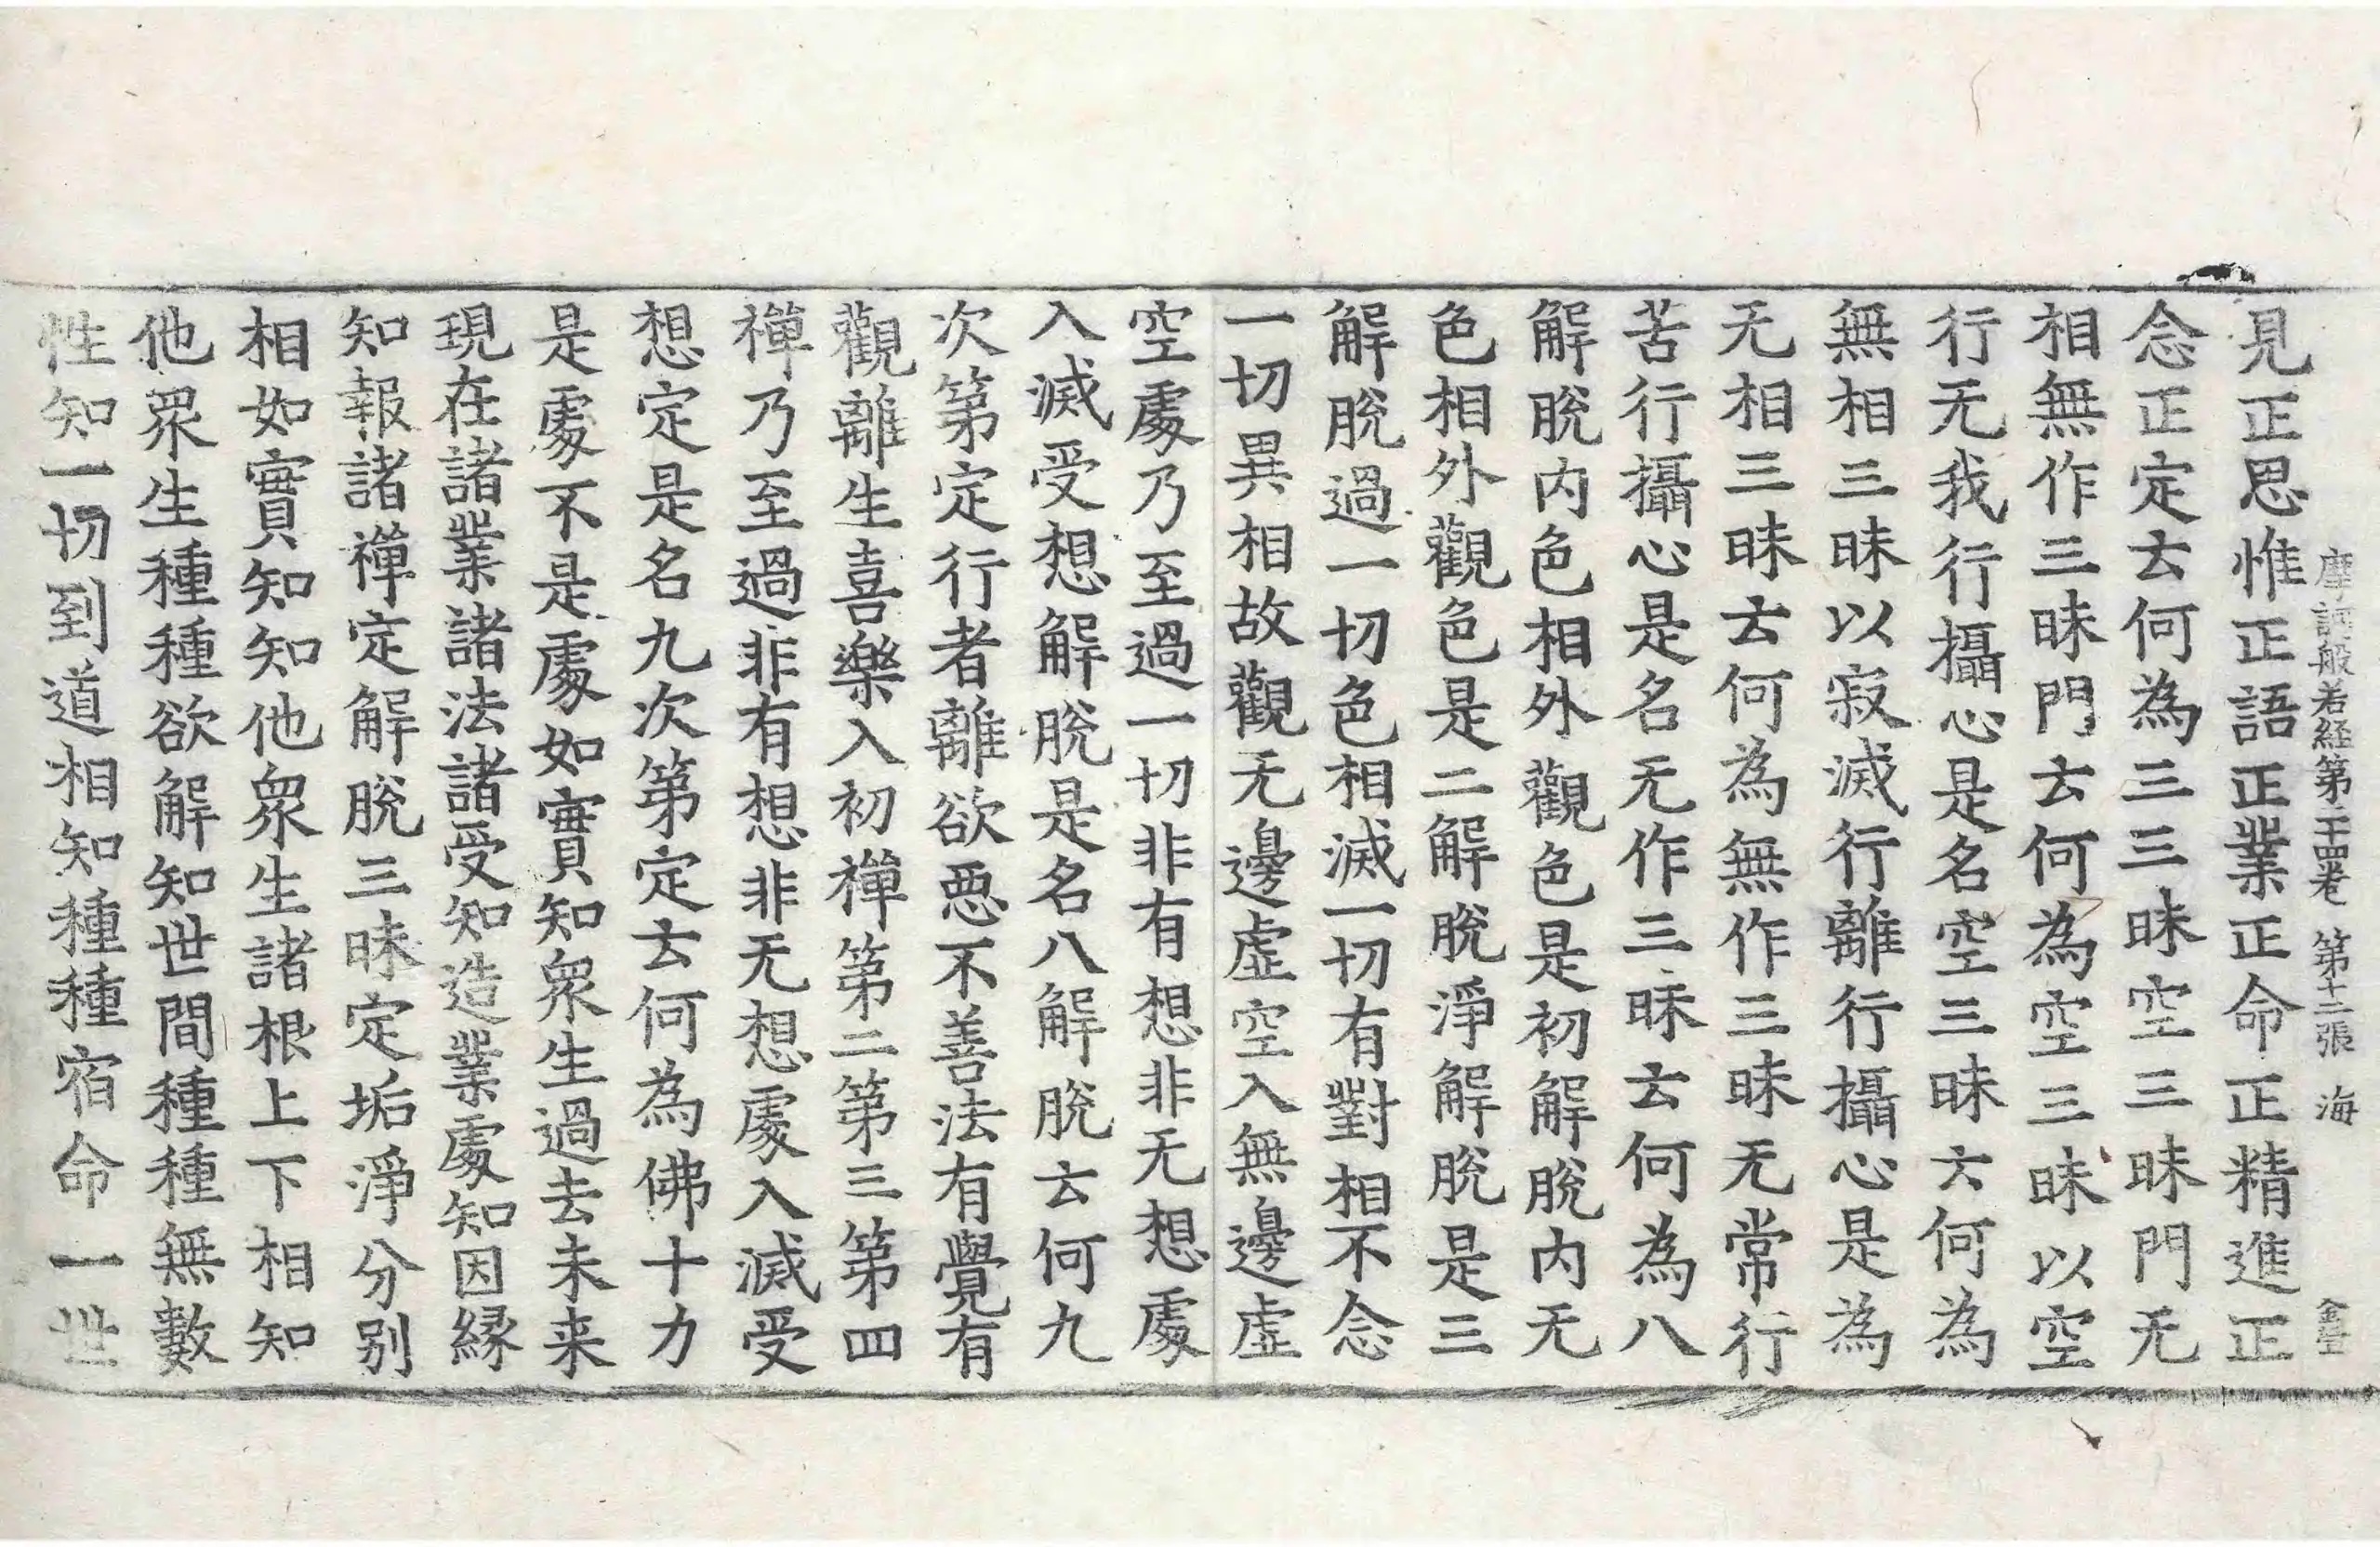 摩訶般若経第二十四卷 第十二張 海
見正思惟正語正業正命正精進正
念正定云何為三三昧空三昧門无
相無作三昧門云何為空三昧以空
行无我行攝心是名空三昧云何為
無相三昧以寂滅行離行攝心是為
无相三昧云何為無作三昧无常行
苦行攝心是名无作三昧云何為八
解脫内色相外觀色是初解脫内无
色相外觀色是二解脫淨解脫是三
解脫過一切色相滅一切有對相不念
一切異相故觀无邊虛空入無邊虛
空處乃至過一切非有想非无想處
入滅受想解脫是名八解脫云何九
次第定行者離欲惡不善法有覺有
觀離生喜樂入初禪第二第三第四
禪乃至過非有想非无想處入滅受
想定是名九次第定云何為佛十力
是處不是處如實知衆生過去未来
現在諸業諸法諸受知造業處知因緣
知報諸禪定解脫三昧定垢淨分别
相如實知知他衆生諸根上下相知
他衆生種種欲解知世間種種無數
性知一切到道相知種種宿命一世